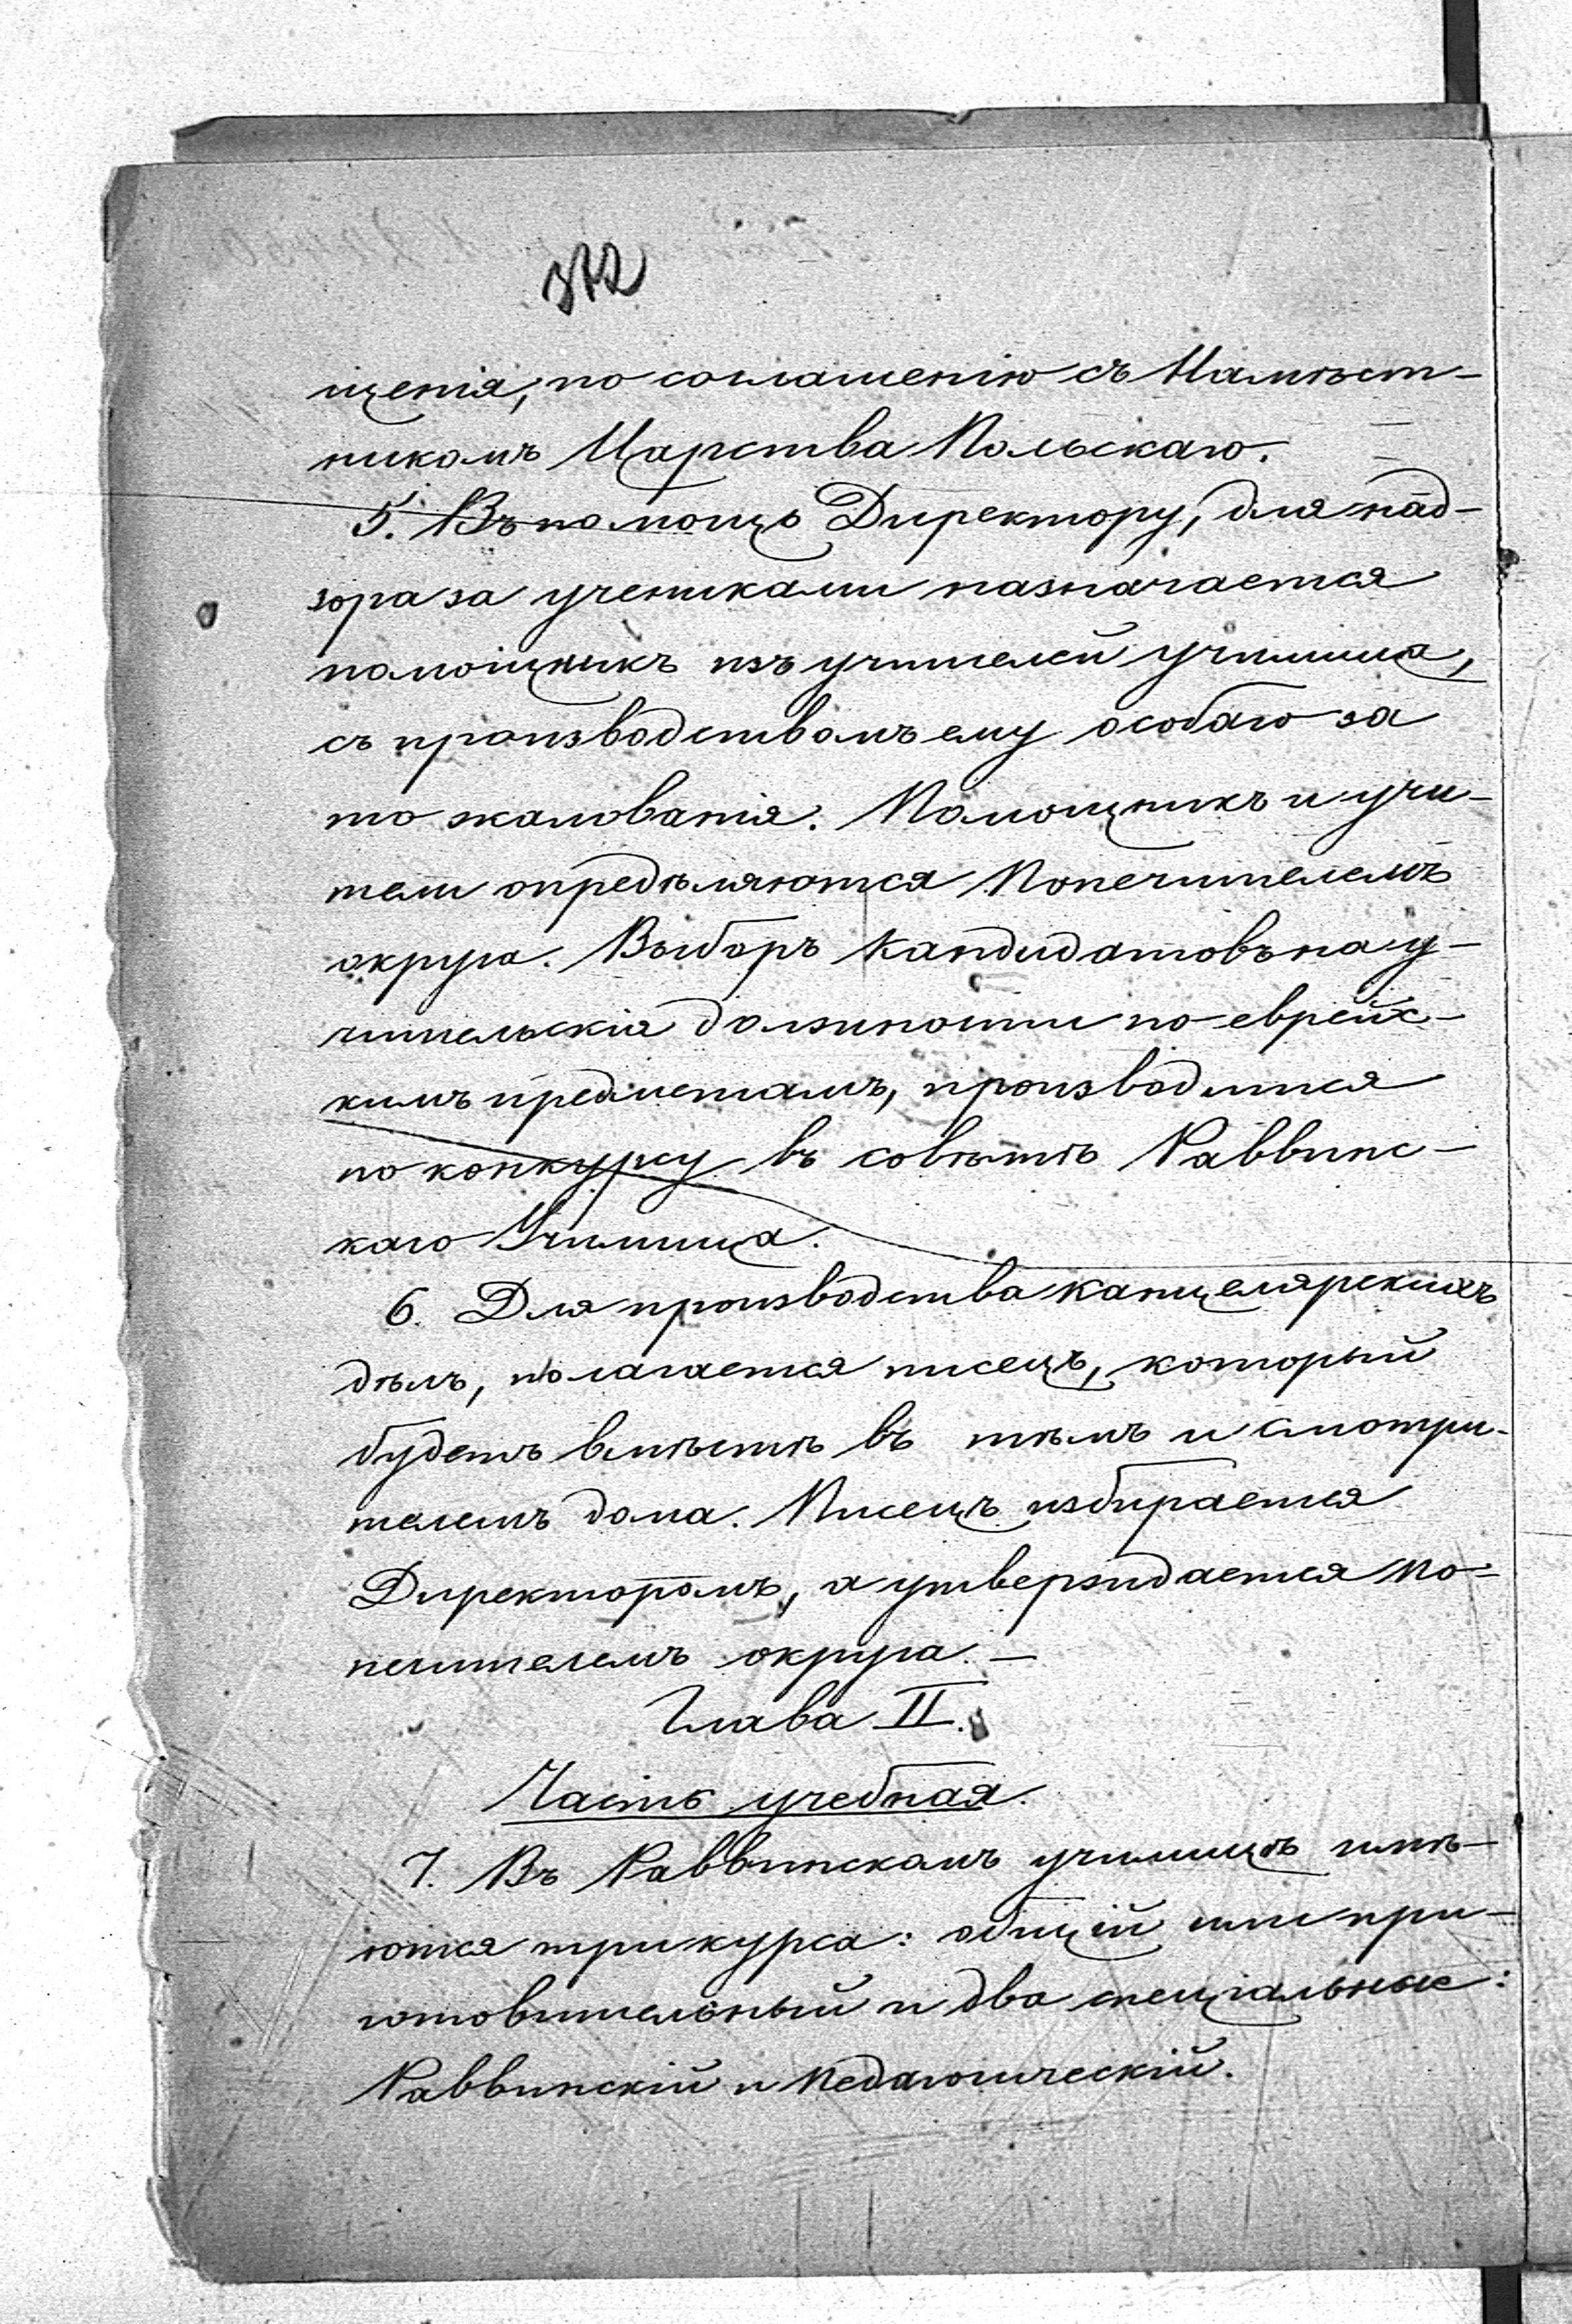 372
щенія, по соглашенію съ Намѣст-
никомъ Царства Польскаго.
5. Въ помощь Директору, для над-
зора за учениками назначается
помощникъ изъ учителей училища,
съ производствомъ ему особаго за
то жалованія. Помощникъ и учи-
тели опредѣляются Попечителемъ
округа. Выборъ кандидатовъ на у-
чительскія должности по еврейс-
кимъ предметамъ, производится
по конкурсу въ совѣтѣ Раввинс-
каго Училища.
6. Для производства канцелярскихъ
дѣлъ, полагается писецъ, который
будетъ вмѣстѣ въ тѣмъ и смотри-
телемъ дома. Писецъ избирается
Директоромъ, а утверждается По-
печителемъ округа. —
Глава II.
Часть учебная.
7. Въ Раввинскомъ училищѣ имѣ-
ются три курса: общій или при-
готовительный и два спеціальные:
Раввинскій и Педагогическій.